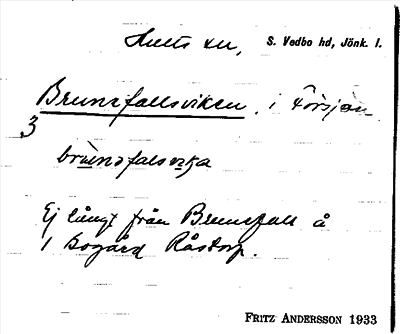 Hults sn, S. Vedbo hd, Jönk. l.
Brunsfallsviken, i Försjön
3
brùnsfalsvɩka
Ej långt från Brunsfall å
1 Bogård Råstorp.
FRITZ ANDERSSON 1933